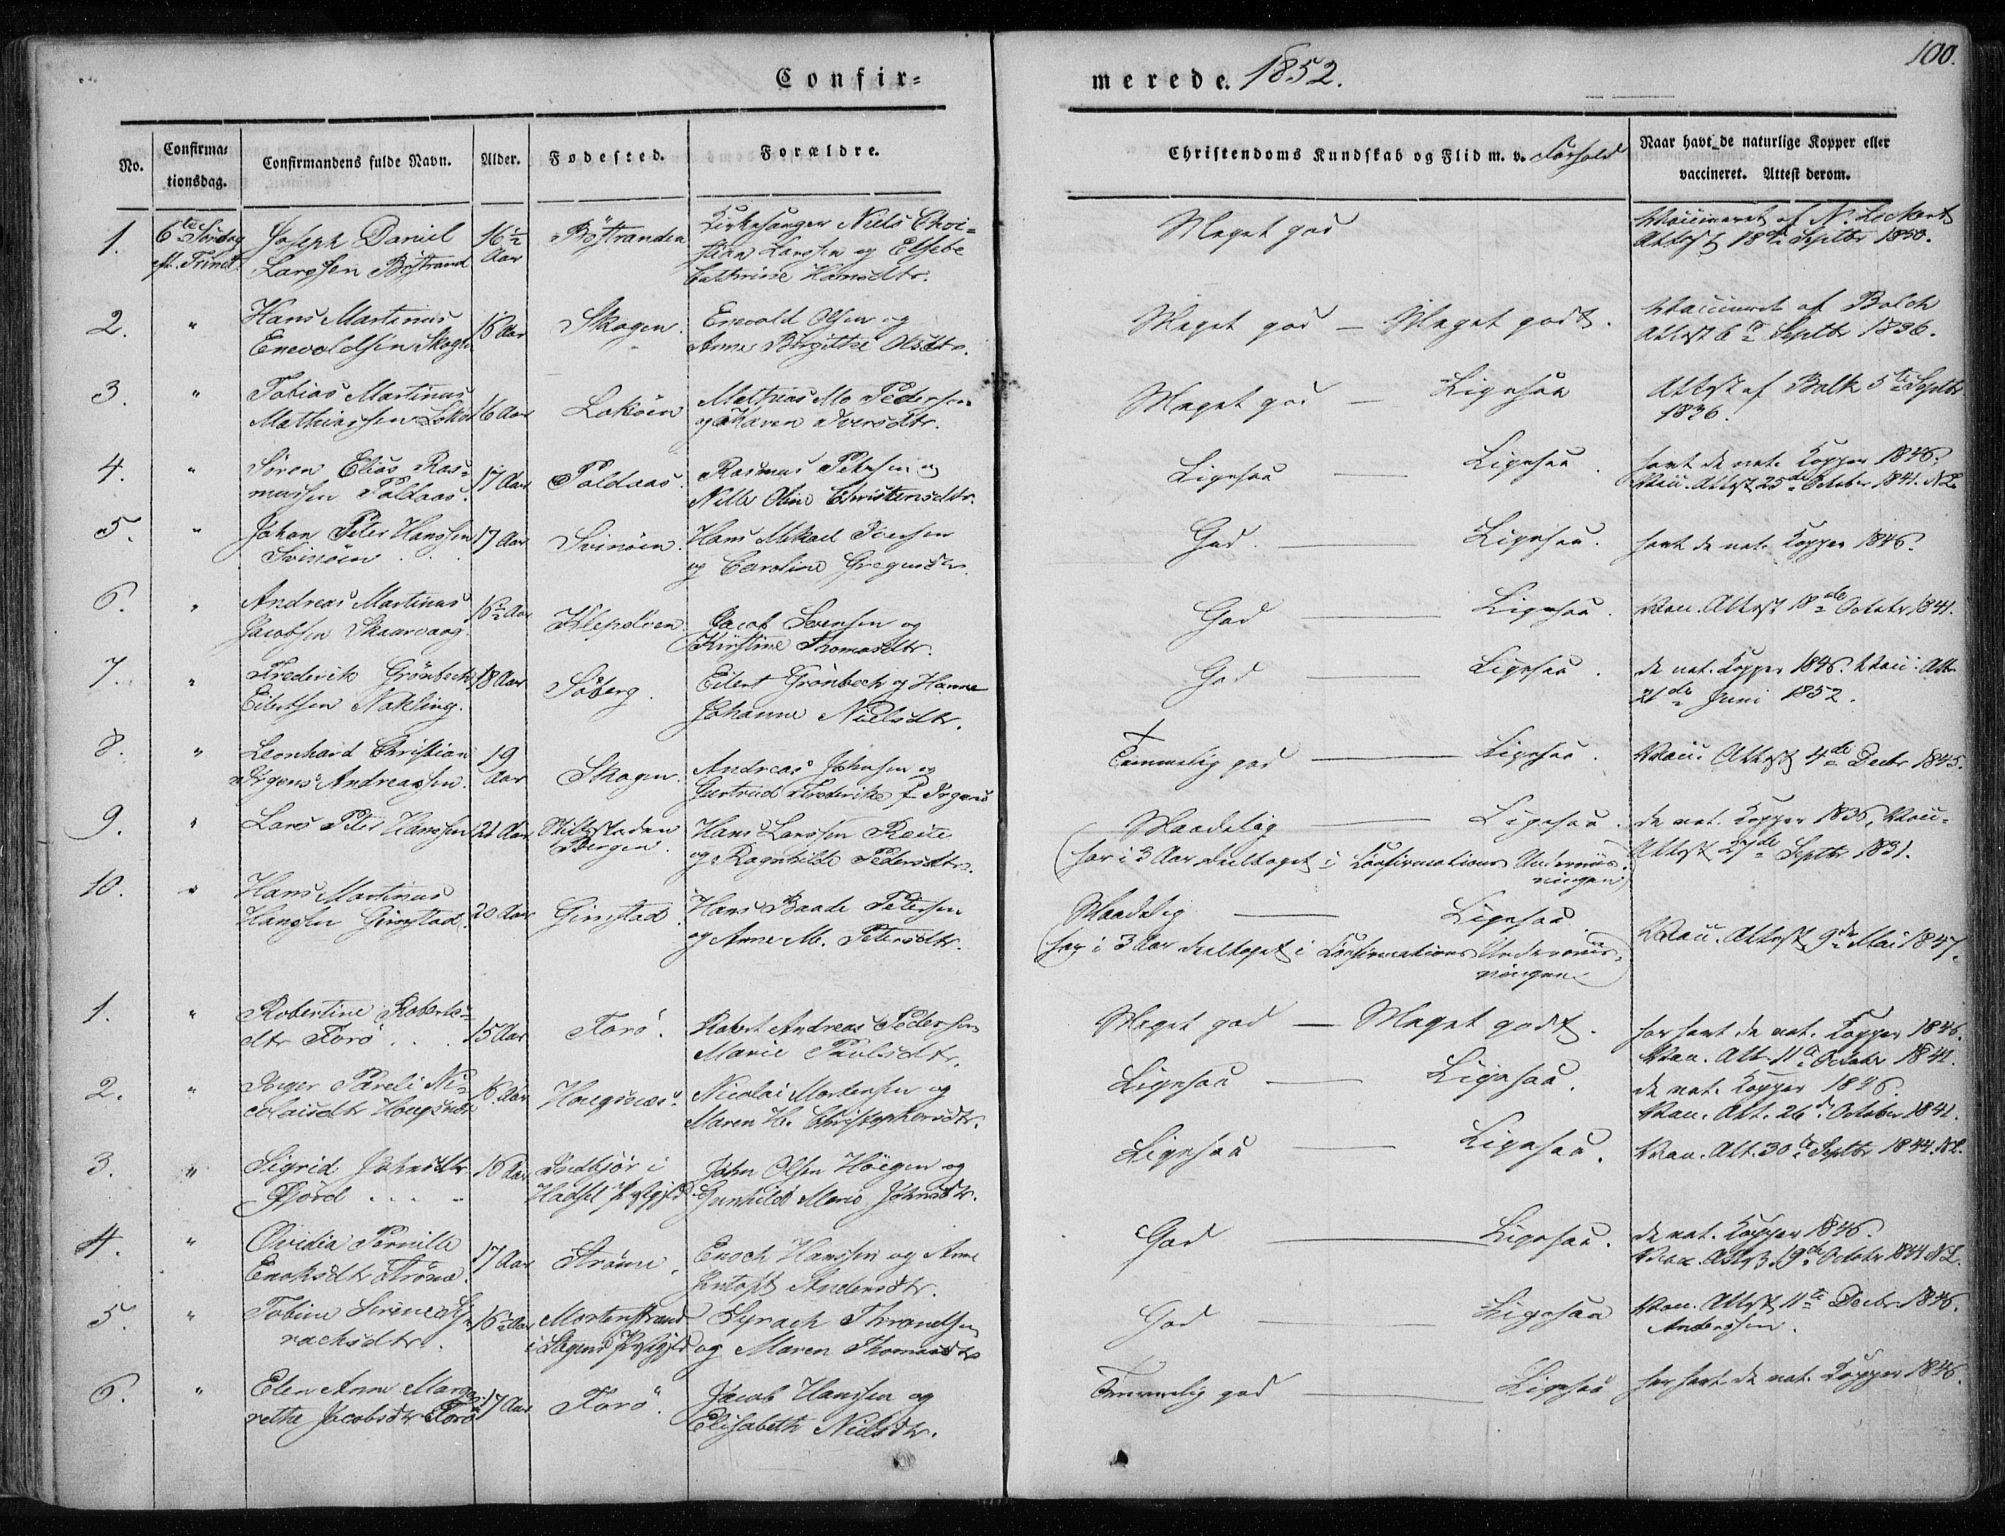 100.
Confir=
merede. 1852.
No.
Confirma=
tionsdag.
Confirmandens fulde Navn.
Alder.
Fødested.
Forældre.
Christendoms Kundskab og Flid m. v. Forhold
Naar havt de naturlige Kopper eller
vaccineret. Attest derom.
1.
6te Søndag
eft. Trinit.
Joseph Daniel
Larssen Bøstrand
16½
Aar
Bøstranden
Kirkesanger Niels Chri=
stian Larssen og Elsebe
Cathrine Hansdtr.
Meget god
Vaccineret af N. Lockert
Attest 18de Septbr
2.
"
Hans Martinus
Enevoldsen Skogen
Aar
Skogen.
Enevold Olsen og
Anne Birgitthe Olsdtr.
Meget god — Meget godt.
Vaccineret af Balch
Attest 6te Septbr 1836.
3.
"
Tobias Martinus
Mathiassen Lokøe
16 Aar
Lokøen
Mathias Mo Pedersen
og Maren Iversdtr.
Meget god — Ligesaa
Attest af Balk 5te Septbr
1836.
4.
"
Søren Elias Ras=
mussen Poldaas.
17 Aar
Poldaas.
Rasmus Petersen og
Nille Oline Christensdtr.
Ligesaa — Ligesaa.
havt de nat. Kopper 1846.
Vacc. Attest 25de October 1841. NL.
5.
"
Johan Peter Hanssen
Svinøen . .
17 Aar
Svinøen.
Hans Mikael Ivensen
og Caroline Gregusdtr.
God. — Ligesaa.
havt de nat. Kopper 1846.
6.
"
Andreas Martinus
Jacobsen Skaarvaag.
16½ Aar
Jacob Sørensen og
Kirstine Thomasdtr.
God — Ligesaa.
Vacc. Attest 18de Octobr, 1841.
7.
"
Frederik Grønbech
Eilertsen Nakling.
18 Aar
Søberg.
Eilert Grønbech og Hanne
Johanne Nielsdtr.
God — Ligesaa.
de nat. Kopper 1846. Vacc. Att.
21de Juni 1852.
8.
"
Leonhard Christian
Irgens Andreassen.
19
Aar
Skogen.
Andreas Johnsen og
Gertrud Frederikke f. Irgens
Temmelig god — Ligesaa.
Vacc. Attest 4de Decbr 1845.
9.
"
Lars Peter Hanssen
21 Aar
Bergen.
Hans Larssen Reine
og Ragnhilde Pedersdtr.
Maadelig — Ligesaa.
(har i 3 Aar deeltaget i Confirmations Underviis=
ningen)
de nat. Kopper 1836, Vacc.
Attest 27de Septbr 1831.
10.
"
Hans Martinus
Hanssen Gimstad.
20 Aar
Gimstad.
Hans Baade Petersen
og Anne M. Petersdtr.
Maadelig — Ligesaa.
(har i 3 Aar deeltaget i Confirmations Underviis=
ningen)
Vacc. Attest 9de Mai 1847.
1.
"
Robertine Roberts=
dtr Forø . . .
15 Aar
Forø.
Robert Andreas Pedersen
Marie Paulsdtr.
Meget god — Meget godt.
har havt de nat. Kopper 1846.
Vacc. Att. 11te Octobr 1841.
2.
"
Inger Pareli Ni=
colaisdtr Hougsnæs
Aar
Hougsnæs
Nicolai Mortensen og
Maren H. Christophersdtr.
Ligesaa — Ligesaa.
de nat. Kopper 1846.
Vacc. Att. 26de October 1841.
3.
"
Sigrid Johnsdtr
Fjord . . . .
Aar
i
Hadsel Præstegjeld
John Olsen Høegen og
Gunhild Marie Johnsdtr.
Ligesaa — Ligesaa.
Vacc. Att. 30te Septbr 1844. NL.
4.
"
Ovidia Pernille
Enoksdtr Strøme.
17 Aar
Strøme.
Enoch Hanssen og Anne
Jentoft Andersdtr.
God — Ligesaa.
de nat. Kopper 1846.
Vacc. Attest 19de Octobr NL.
5.
"
Tobine Sirine Sy=
rachsdtr.
16½ Aar
Mortenstrand
i Præstgjeld
Syrach Thronelsen
og Maren Thomasdtr
God — Ligesaa
Vacc. Attest 11te Decbr 1846.
Anderssen.
6.
"
Elen Anne Marga=
rethe Jacobsdtr Forø
17 Aar
Forø.
Jacob Hanssen og
Elisabeth Nielsdtr.
Temmelig god — Ligesaa
har havt de nat. Kopper 1846.